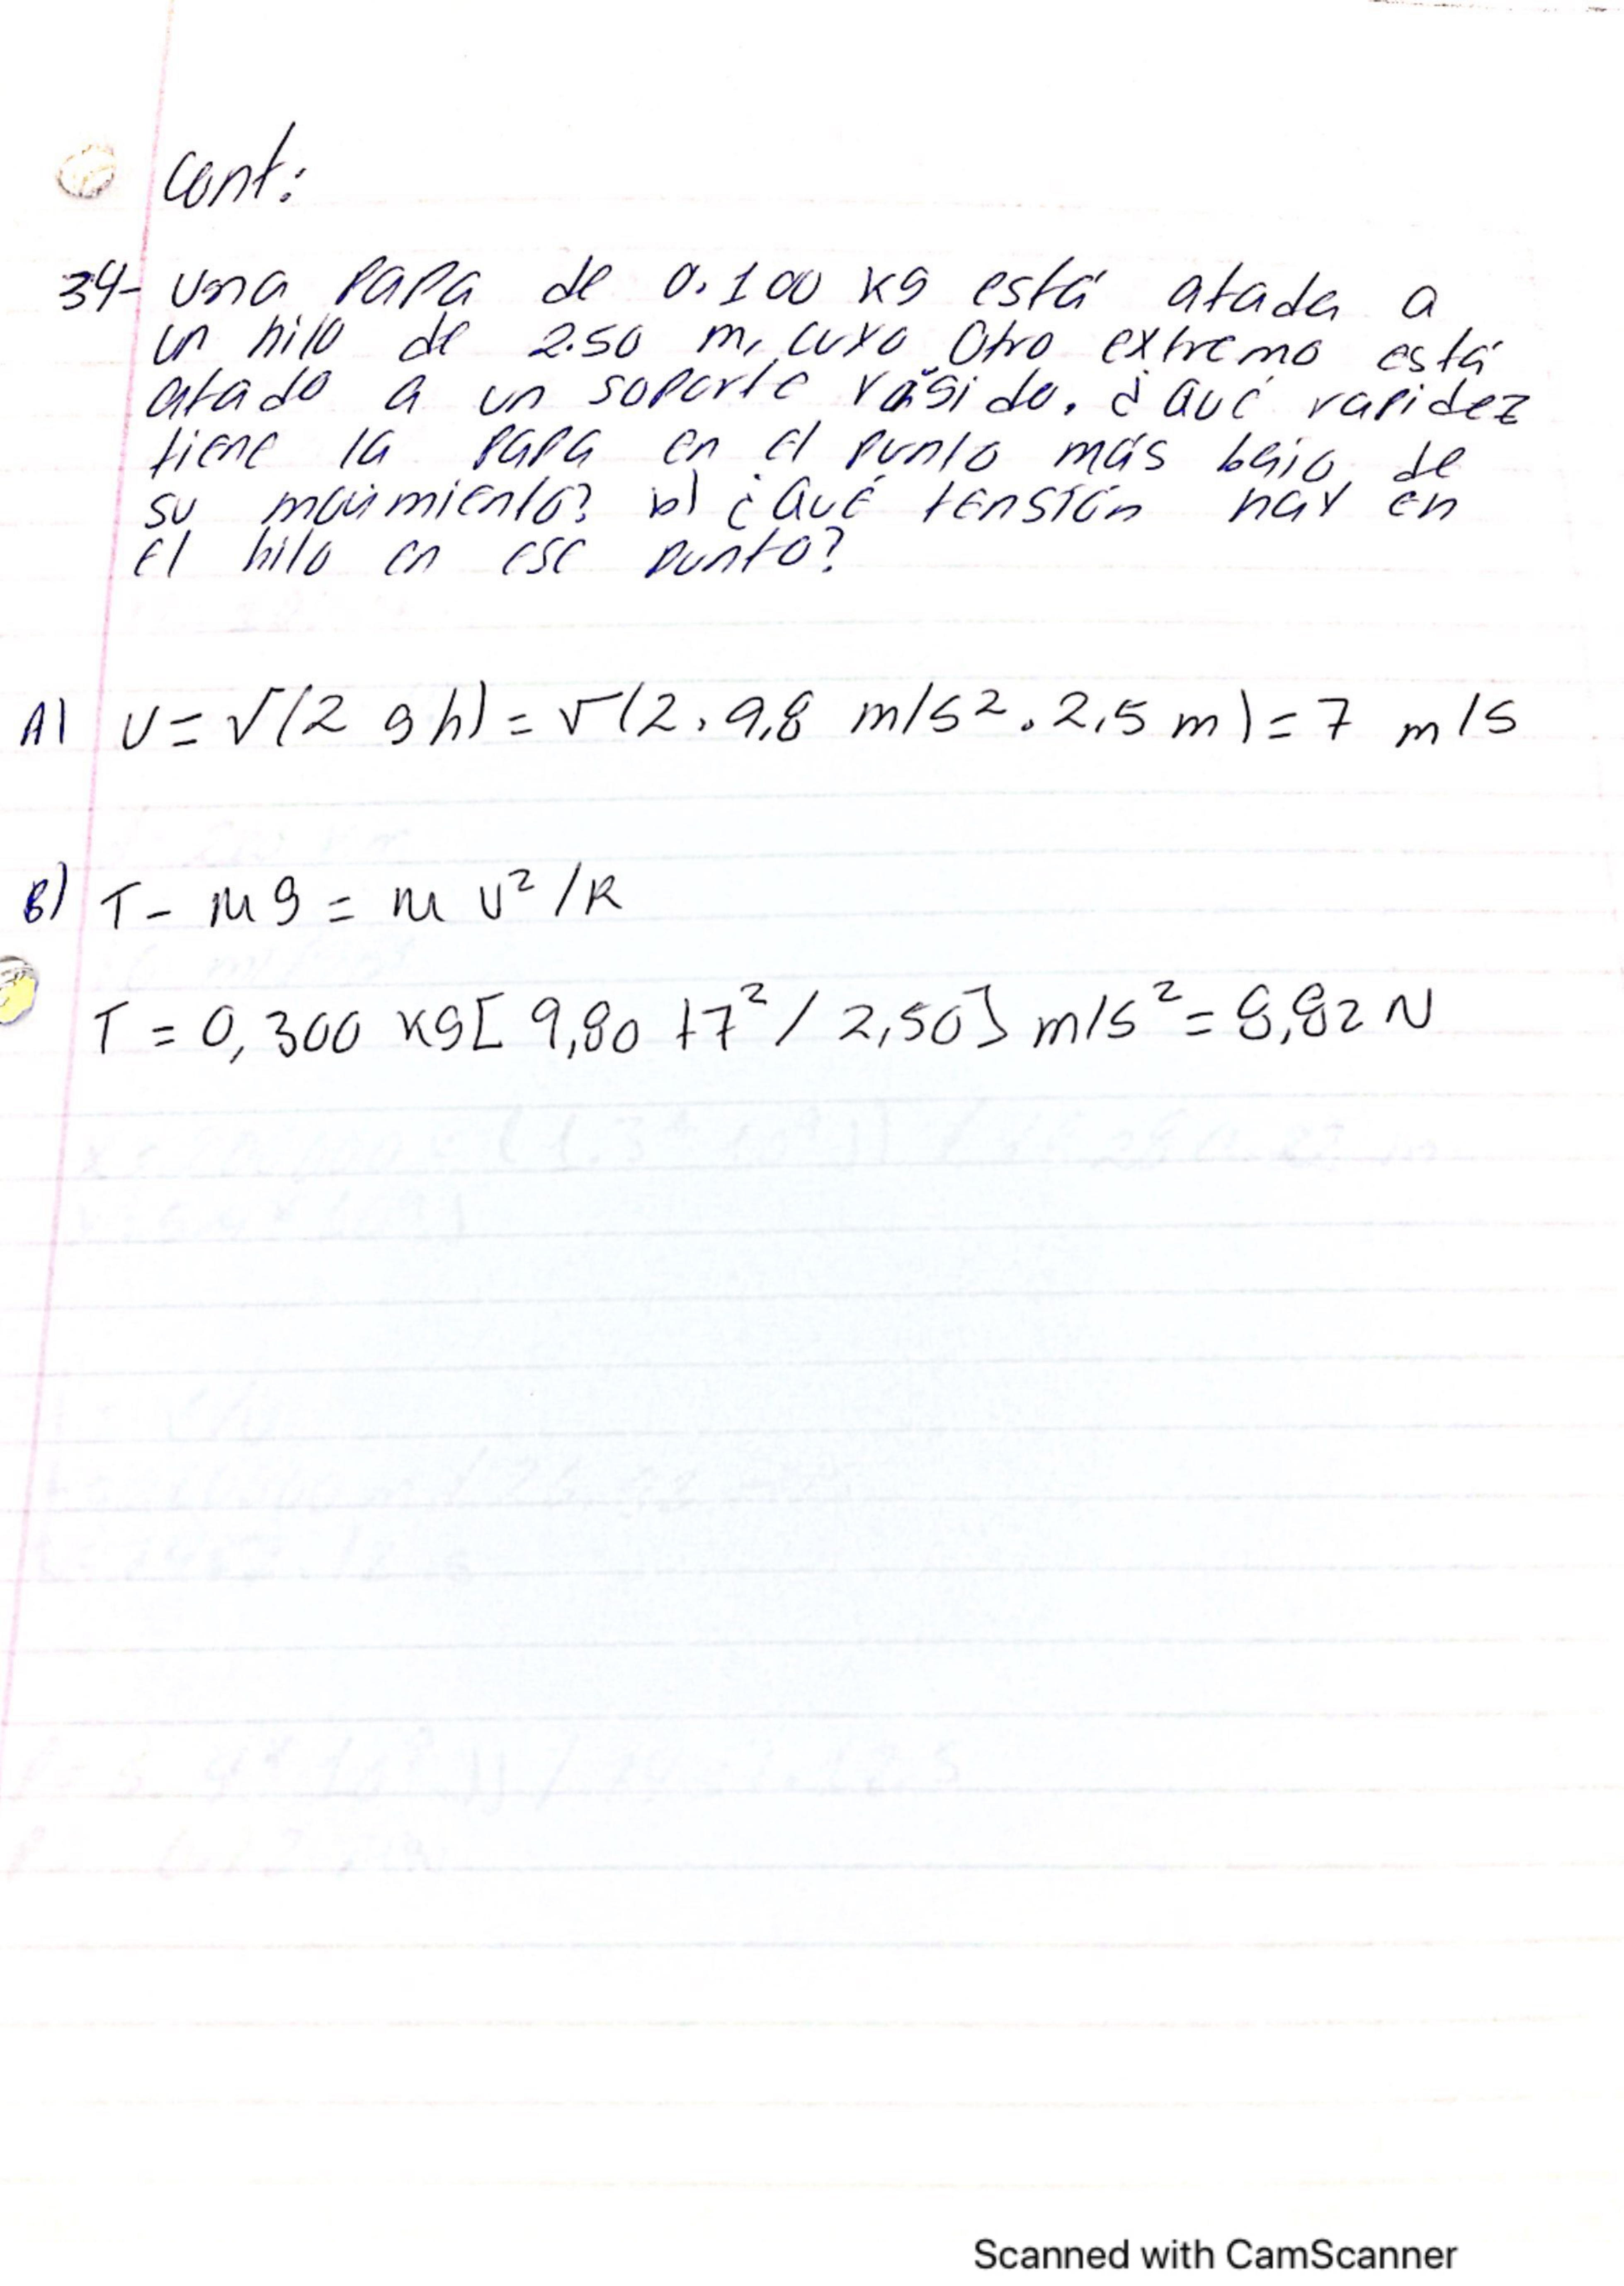 cont:
34- una papa de 0.100 kg está atada a
un hilo de 2.50 m, cuyo otro extremo está
atado a un soporte rígido. ¿Qué rapidez
tiene la papa en el punto más bajo de
su movimiento? b) ¿Qué tensión hay en
el hilo en ese punto?
A) V = √(2 g h) = √(2 . 9,8 m/s² . 2,5 m) = 7 m/s
B) T - M g = M V² / R
T = 0,300 kg [ 9,80 + 7² / 2,50] m/s² = 8,82 N
Scanned with CamScanner